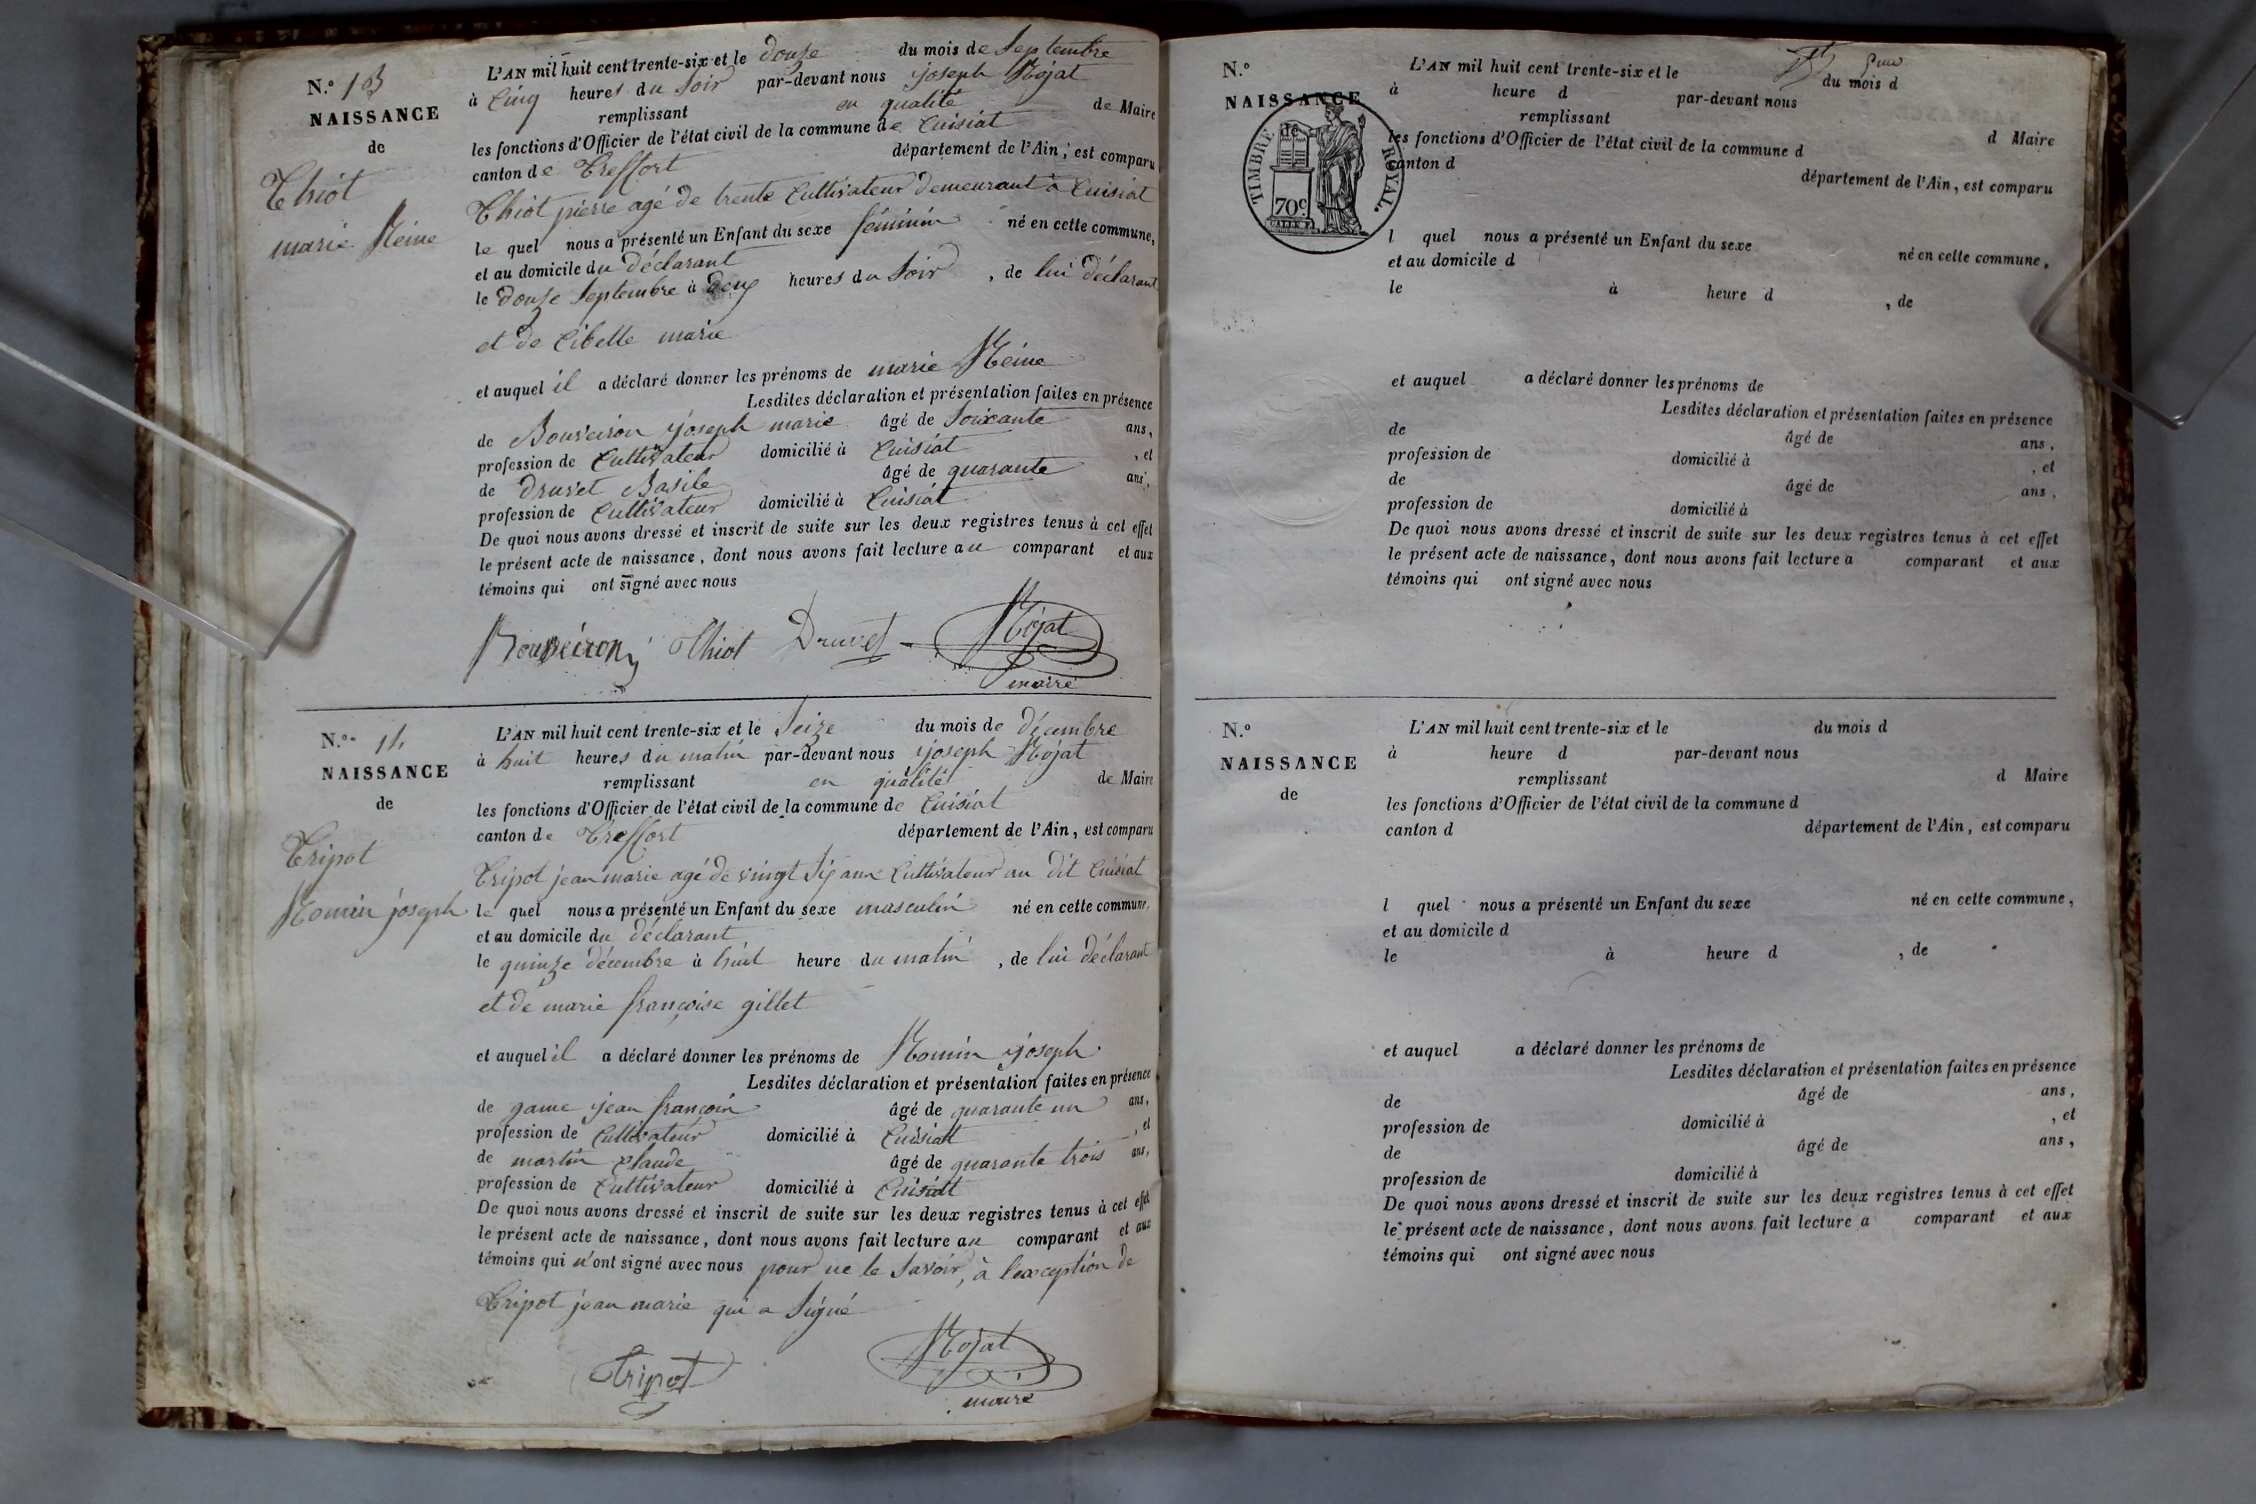 N.º 13
NAISSANCE
de
Thiot
marie Reine
L'AN mil huit cent trente-six et le douze du mois de Septembre
à Cinq heures du Soir par-devant nous joseph Rojat
remplissant en qualité de Maire
les fonctions d'Officier de l'état civil de la commune de Cuisiat
canton de Treffort département de l'Ain, est comparu
Thiot pierre agé de trente Cultivateur demeurant à Cuisiat
le quel nous a présenté un Enfant du sexe féminin né en cette commune,
et au domicile du déclarant
le douze Septembre à deux heures du Soir, de lui déclarant
et de Cibelle marie
et auquel il a déclaré donner les prénoms de marie Reine
Lesdites déclaration et présentation faites en présence
de Bouveiron joseph marie âgé de Soixante ans,
profession de Cultivateur domicilié à Cuisiat, et
de Druvet Basile âgé de quarante ans,
profession de Cultivateur domicilié à Cuisiat
De quoi nous avons dressé et inscrit de suite sur les deux registres tenus à cet effet
le présent acte de naissance, dont nous avons fait lecture au comparant et aux
témoins qui ont signé avec nous
Bouveiron Thiot Druvet Rojat
maire
N.º 14
NAISSANCE
de
Tripot
Romin joseph
L'AN mil huit cent trente-six et le Seize du mois de décembre
à huit heures du matin par-devant nous joseph Rojat
remplissant en qualité de Maire
les fonctions d'Officier de l'état civil de la commune de Cuisiat
canton de Treffort département de l'Ain, est comparu
Tripot jean marie agé de vingt Six ans Cultivateur au dit Cuisiat
le quel nous a présenté un Enfant du sexe masculin né en cette commune,
et au domicile du déclarant
le quinze décembre à huit heure du matin, de lui déclarant
et de marie françoise gillet
et auquel il a déclaré donner les prénoms de Romin joseph
Lesdites déclaration et présentation faites en présence
de game jean françois âgé de quarante un ans,
profession de Cultivateur domicilié à Cuisiat, et
de martin Claude âgé de quarante trois ans,
profession de Cultivateur domicilié à Cuisiat
De quoi nous avons dressé et inscrit de suite sur les deux registres tenus à cet effet
le présent acte de naissance, dont nous avons fait lecture au comparant et aux
témoins qui n'ont signé avec nous pour ne le Savoir, à l'exception de
Tripot jean marie qui a Signé
Tripot Rojat
maire
N.º
NAISSANCE
de
TIMBRE ROYAL.
70c
L'AN mil huit cent trente-six et le du mois d
à heure d par-devant nous
remplissant d Maire
les fonctions d'Officier de l'état civil de la commune d
canton d département de l'Ain, est comparu
l quel nous a présenté un Enfant du sexe né en cette commune,
et au domicile d
le à heure d , de
et auquel a déclaré donner les prénoms de
Lesdites déclaration et présentation faites en présence
de âgé de ans,
profession de domicilié à , et
de âgé de ans,
profession de domicilié à
De quoi nous avons dressé et inscrit de suite sur les deux registres tenus à cet effet
le présent acte de naissance, dont nous avons fait lecture a comparant et aux
témoins qui ont signé avec nous
N.º
NAISSANCE
de
L'AN mil huit cent trente-six et le du mois d
à heure d par-devant nous
remplissant d Maire
les fonctions d'Officier de l'état civil de la commune d
canton d département de l'Ain, est comparu
l quel nous a présenté un Enfant du sexe né en cette commune,
et au domicile d
le à heure d , de
et auquel a déclaré donner les prénoms de
Lesdites déclaration et présentation faites en présence
de âgé de ans,
profession de domicilié à , et
de âgé de ans,
profession de domicilié à
De quoi nous avons dressé et inscrit de suite sur les deux registres tenus à cet effet
le présent acte de naissance, dont nous avons fait lecture a comparant et aux
témoins qui ont signé avec nous